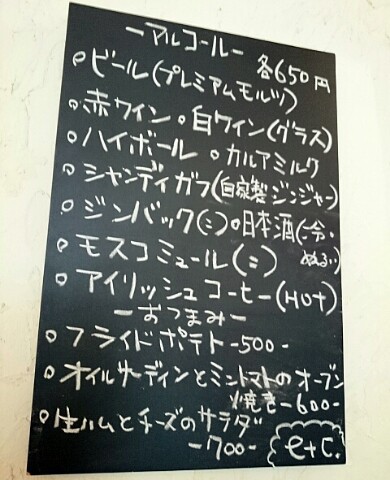 ーアルコールー
各650円
○ビール(プレミアムモルツ)
○赤ワイン ○白ワイン(グラス)
○ハイボール ○カルアミルク
○シャンディガフ(自家製ジンジャー)
○ジンバック(〃) ○日本酒(冷・
ぬるい)
○モスコミュール(〃)
○アイリッシュコーヒー(HOT)
ーおつまみー
○フライドポテト -500-
○オイルサーディンとミニトマトのオーブン
焼き -600-
○生ハムとチーズのサラダ
-700-
etc.